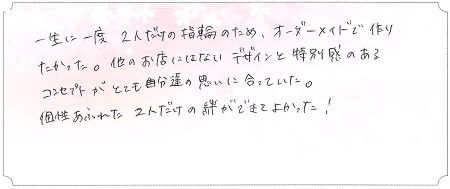 一生に一度 2人だけの指輪のため、オーダーメイドで作り
たかった。他のお店にはないデザインと特別感のある
コンセプトがとても自分達の思いに合っていた。
個性あふれた 2人だけの絆ができてよかった!